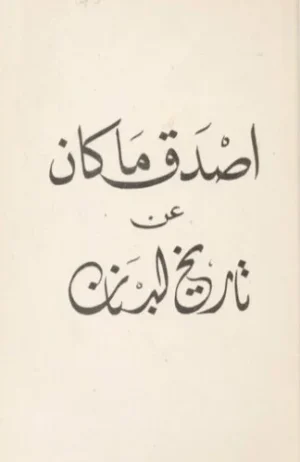 اصْدَق مَا كان
عن
تاريخ لبْنان